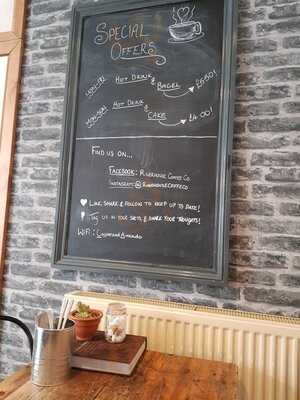 SPECIAL
OFFERS
HOT DRINK & BAGEL £6.50!
HOT DRINK & CAKE £4.00!
FIND US ON...
FACEBOOK: RIVERSIDE COFFEE CO
INSTAGRAM: @RIVERSIDECOFFEECO
LIKE, SHARE & FOLLOW TO KEEP UP TO DATE!
TAG US IN YOUR SNAPS & SHARE YOUR THOUGHTS!
WIFI: